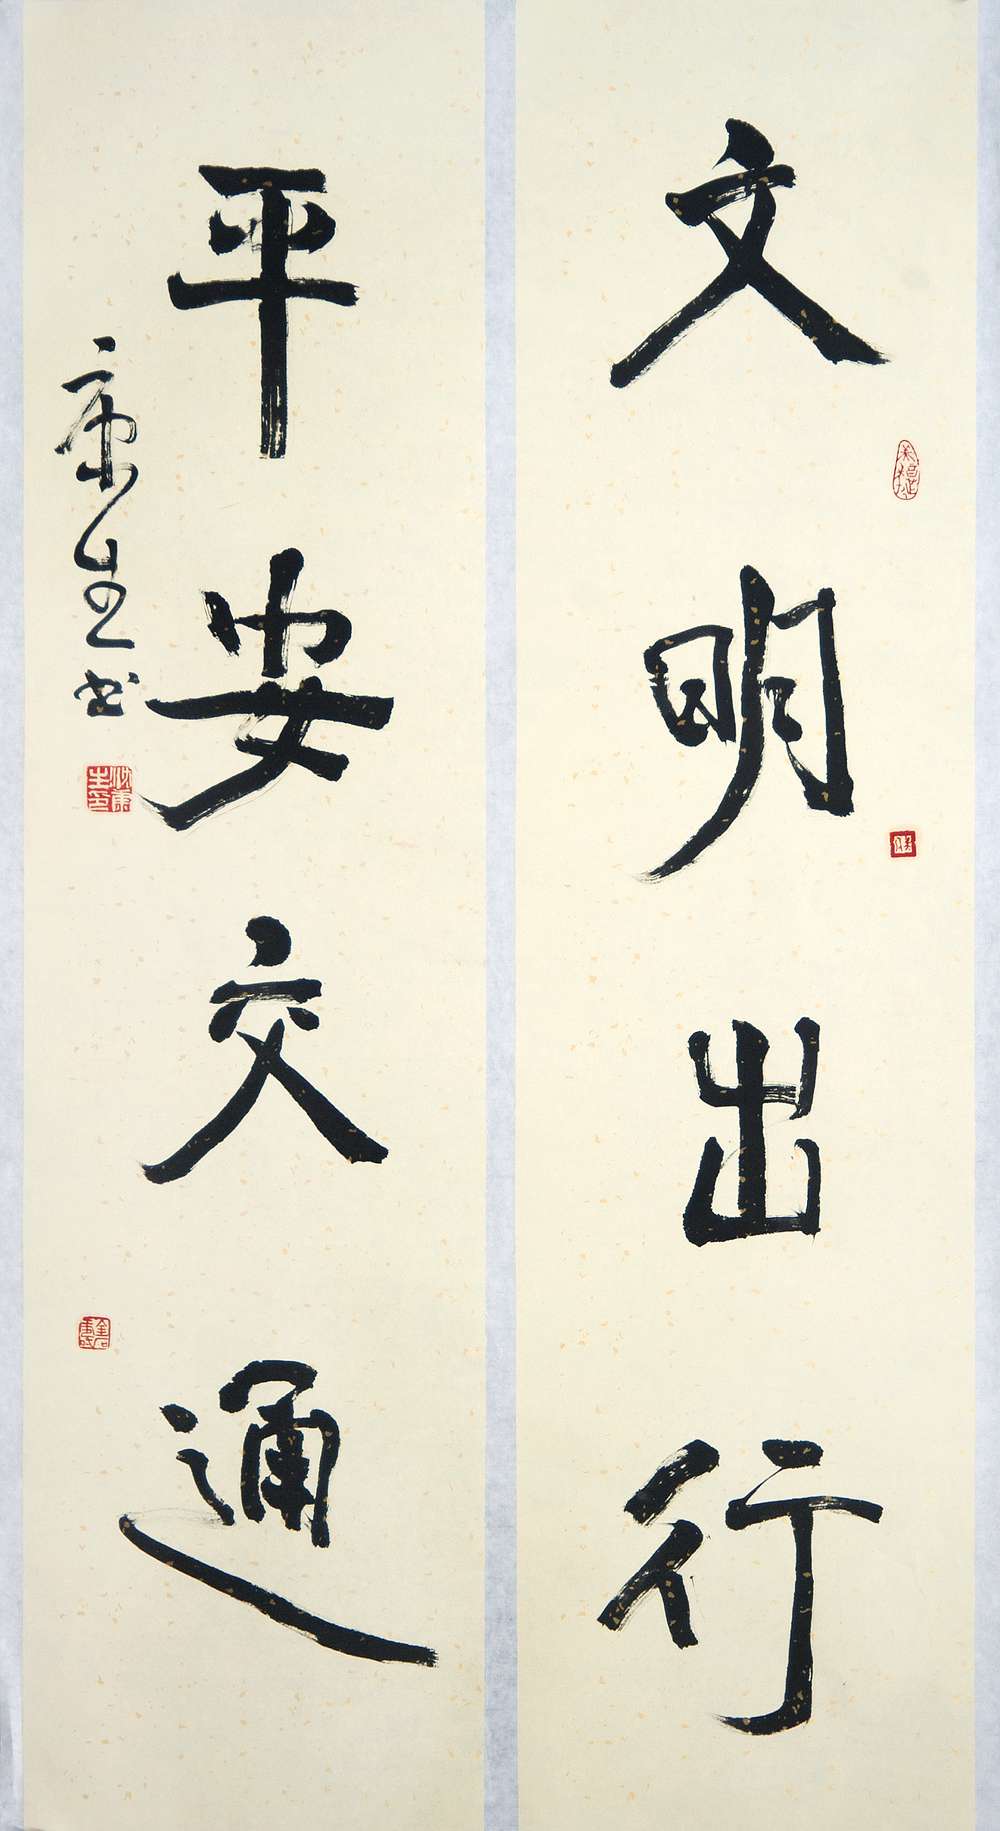 文明出行
平安交通
康生书